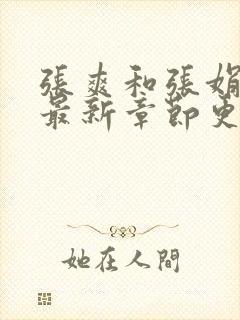 張爽和張娟
最新章節更
她在人間